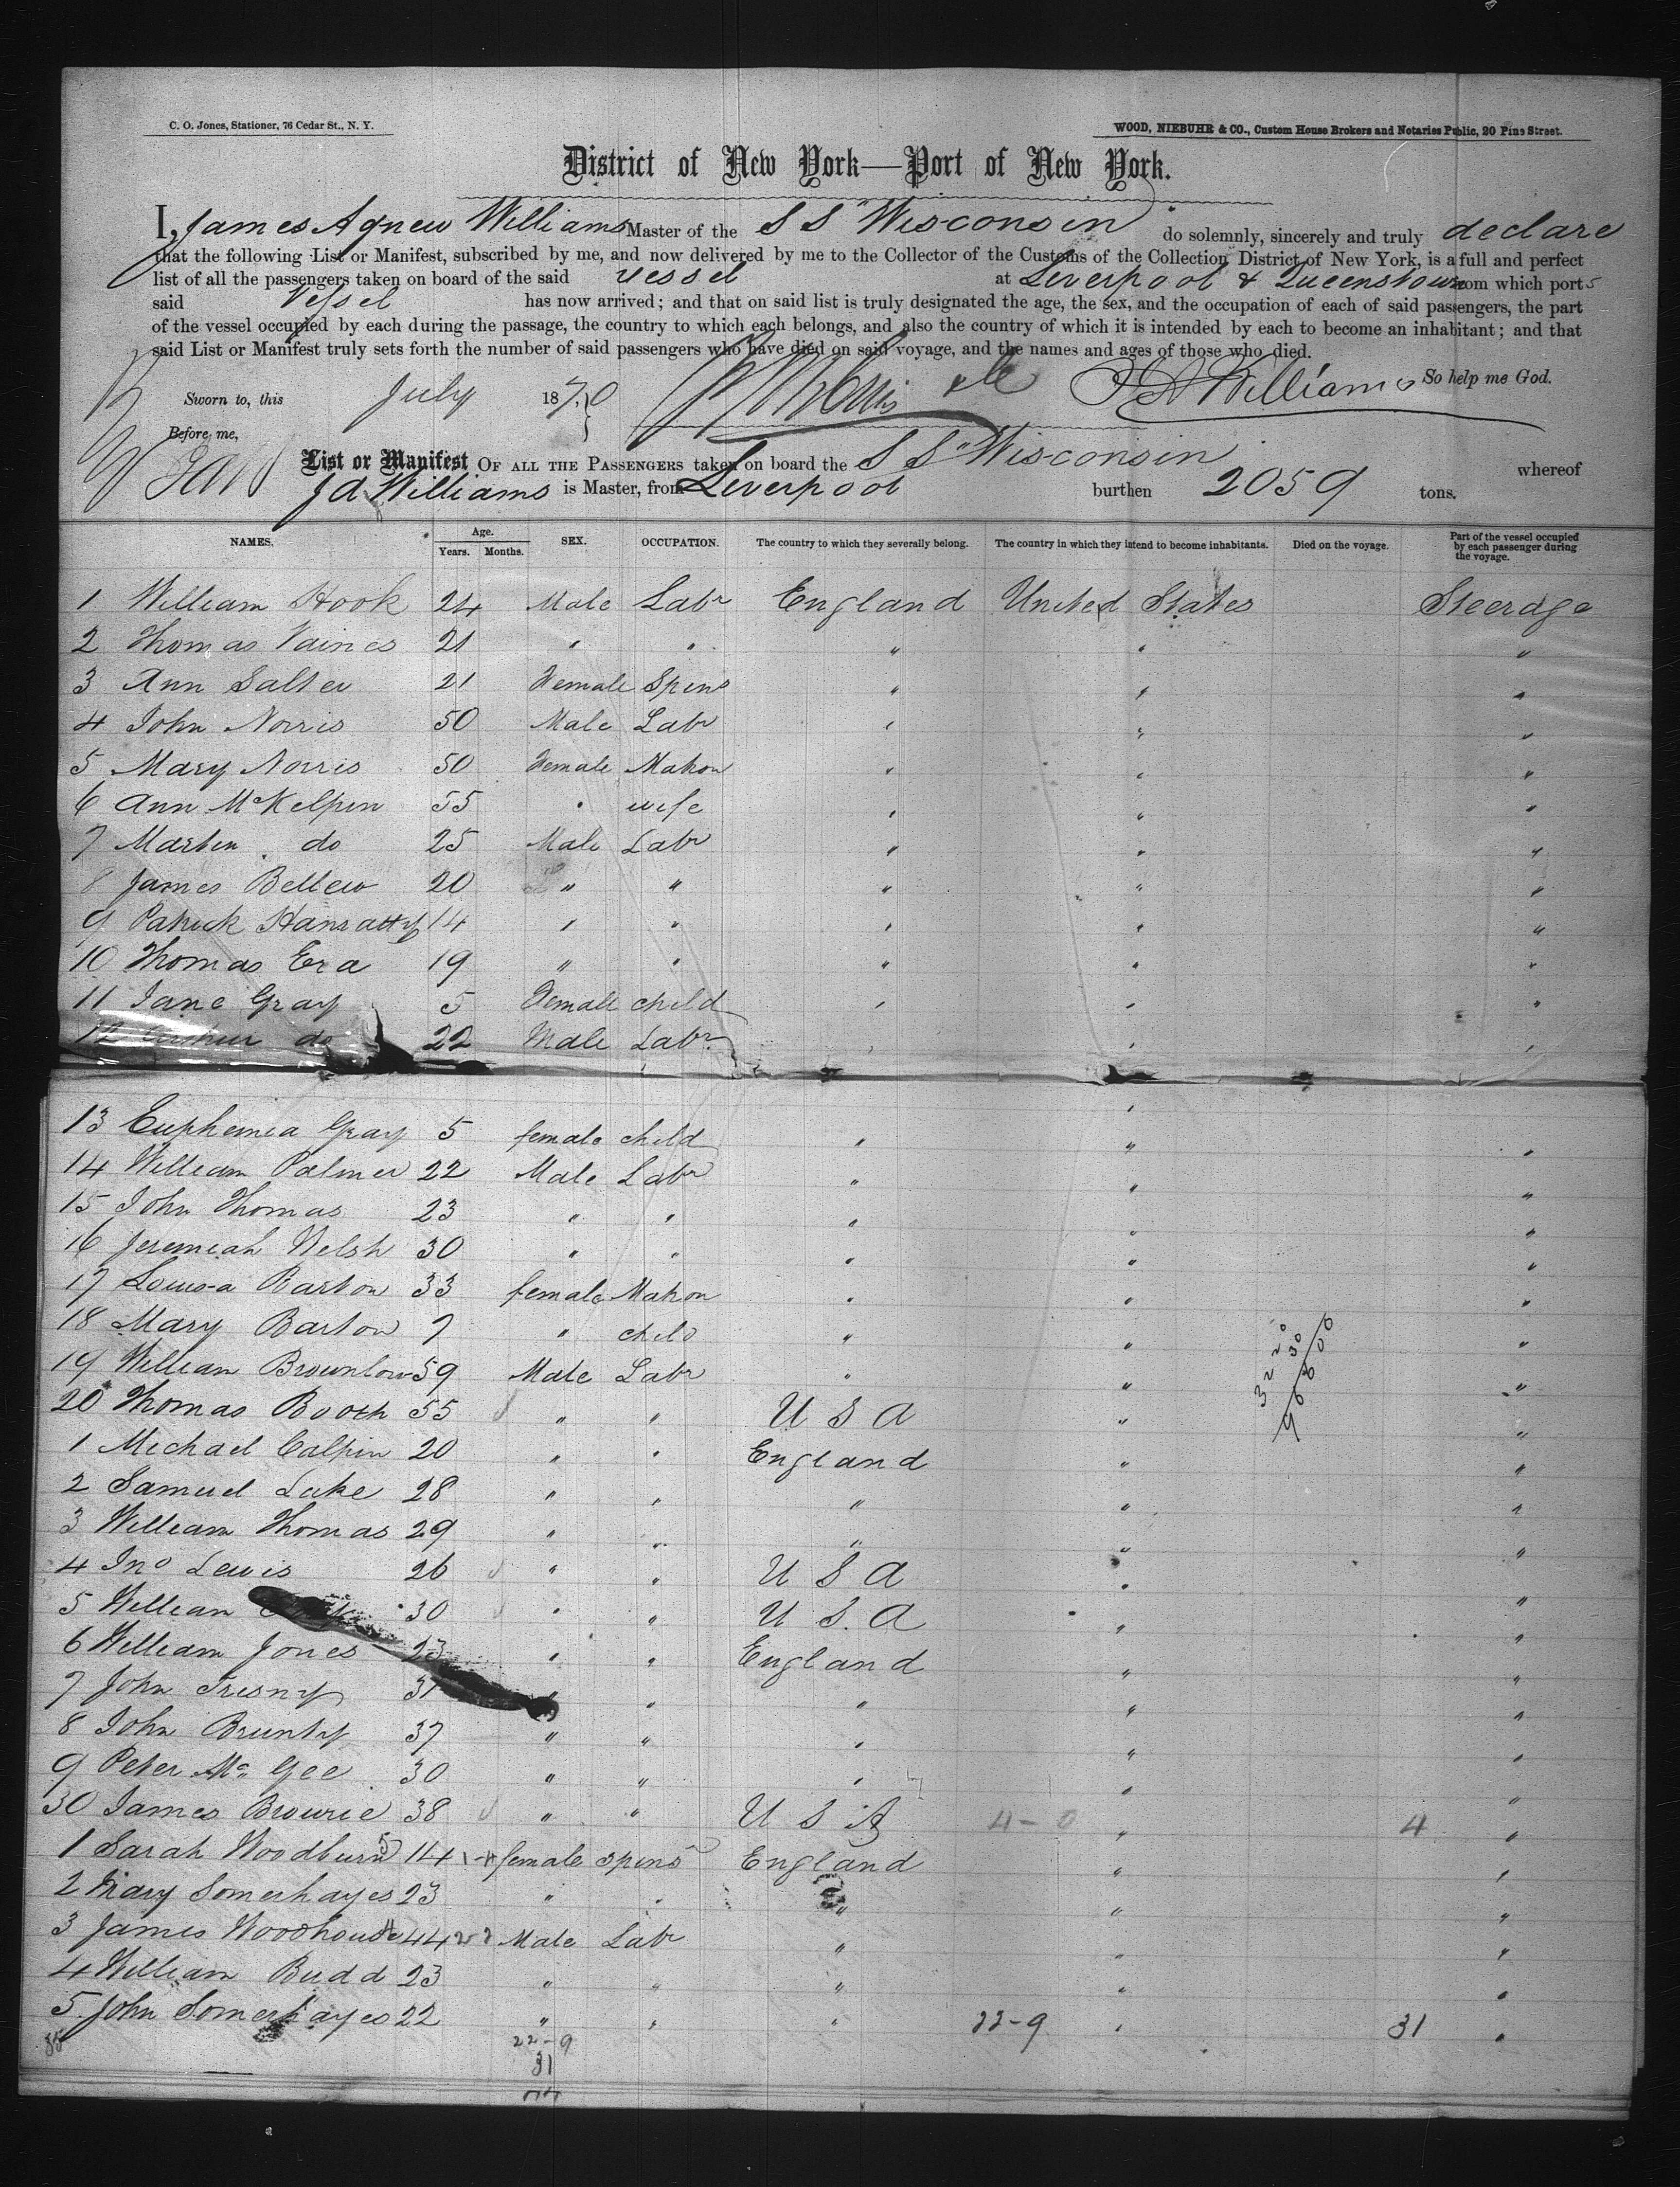 C. O. Jones, Stationer, 76 Cedar St., N. Y.
WOOD, NIEBUHR & CO., Custom House Brokers and Notaries Public, 20 Pine Street.
District of New York—Port of New York.
I, James Agnew Williams Master of the S S "Wisconsin" do solemnly, sincerely and truly declare
that the following List or Manifest, subscribed by me, and now delivered by me to the Collector of the Customs of the Collection District of New York, is a full and perfect
list of all the passengers taken on board of the said vessel at Liverpool & Queenstown from which ports
said Vessel has now arrived; and that on said list is truly designated the age, the sex, and the occupation of each of said passengers, the part
of the vessel occupied by each during the passage, the country to which each belongs, and also the country of which it is intended by each to become an inhabitant; and that
said List or Manifest truly sets forth the number of said passengers who have died on said voyage, and the names and ages of those who died.
Sworn to, this July 1870 J A Williams So help me God.
Before me,
List or Manifest OF ALL THE PASSENGERS taken on board the S S "Wisconsin whereof
J A Williams is Master, from Liverpool burthen 2059 tons.
NAMES. Age. Years. Months. SEX. OCCUPATION. The country to which they severally belong. The country in which they intend to become inhabitants. Died on the voyage. Part of the vessel occupied by each passenger during the voyage.
1 William Hook 24 Male Labr England United States Steerage
2 Thomas Vaines 21 " " " " "
3 Ann Salter 21 Female Spins " " "
4 John Norris 50 Male Labr " " "
5 Mary Norris 50 Female Matron " " "
6 Ann McKelpin 55 " wife " " "
7 Martin do 25 Male Labr " " "
8 James Bellew 20 " " " " "
9 Patrick Hanratty 14 " " " " "
10 Thomas Era 19 " " " " "
11 Jane Gray 5 Female child " " "
12 Arthur do 22 Male Labr " " "
13 Euphemia Gray 5 female child " " "
14 William Palmer 22 Male Labr " " "
15 John Thomas 23 " " " " "
16 Jeremiah Welsh 30 " " " " "
17 Louisa Barton 33 female Matron " " "
18 Mary Barton 7 " child " " "
19 William Brownlow 59 Male Labr " " "
20 Thomas Booth 55 " " U S A " "
1 Michael Calpin 20 " " England " "
2 Samuel Luke 28 " " " " "
3 William Thomas 29 " " " " "
4 Jno Lewis 26 " " U S A " "
5 William 30 " " U. S. A " "
6 William Jones 23 " " England " "
7 John Tresny 31 " " " " "
8 John Brunty 37 " " " " "
9 Peter McGee 30 " " " " "
30 James Browrie 38 " " U S A 4-0 " 4 "
1 Sarah Woodburn 14 female spins England " "
2 Mary Somerhayes 23 " " " " "
3 James Woodhouse 44 Male Labr " " "
4 William Budd 23 " " " " "
5 John Somerhayes 22 " " " 22-9 " 31 "
35
22-9
31